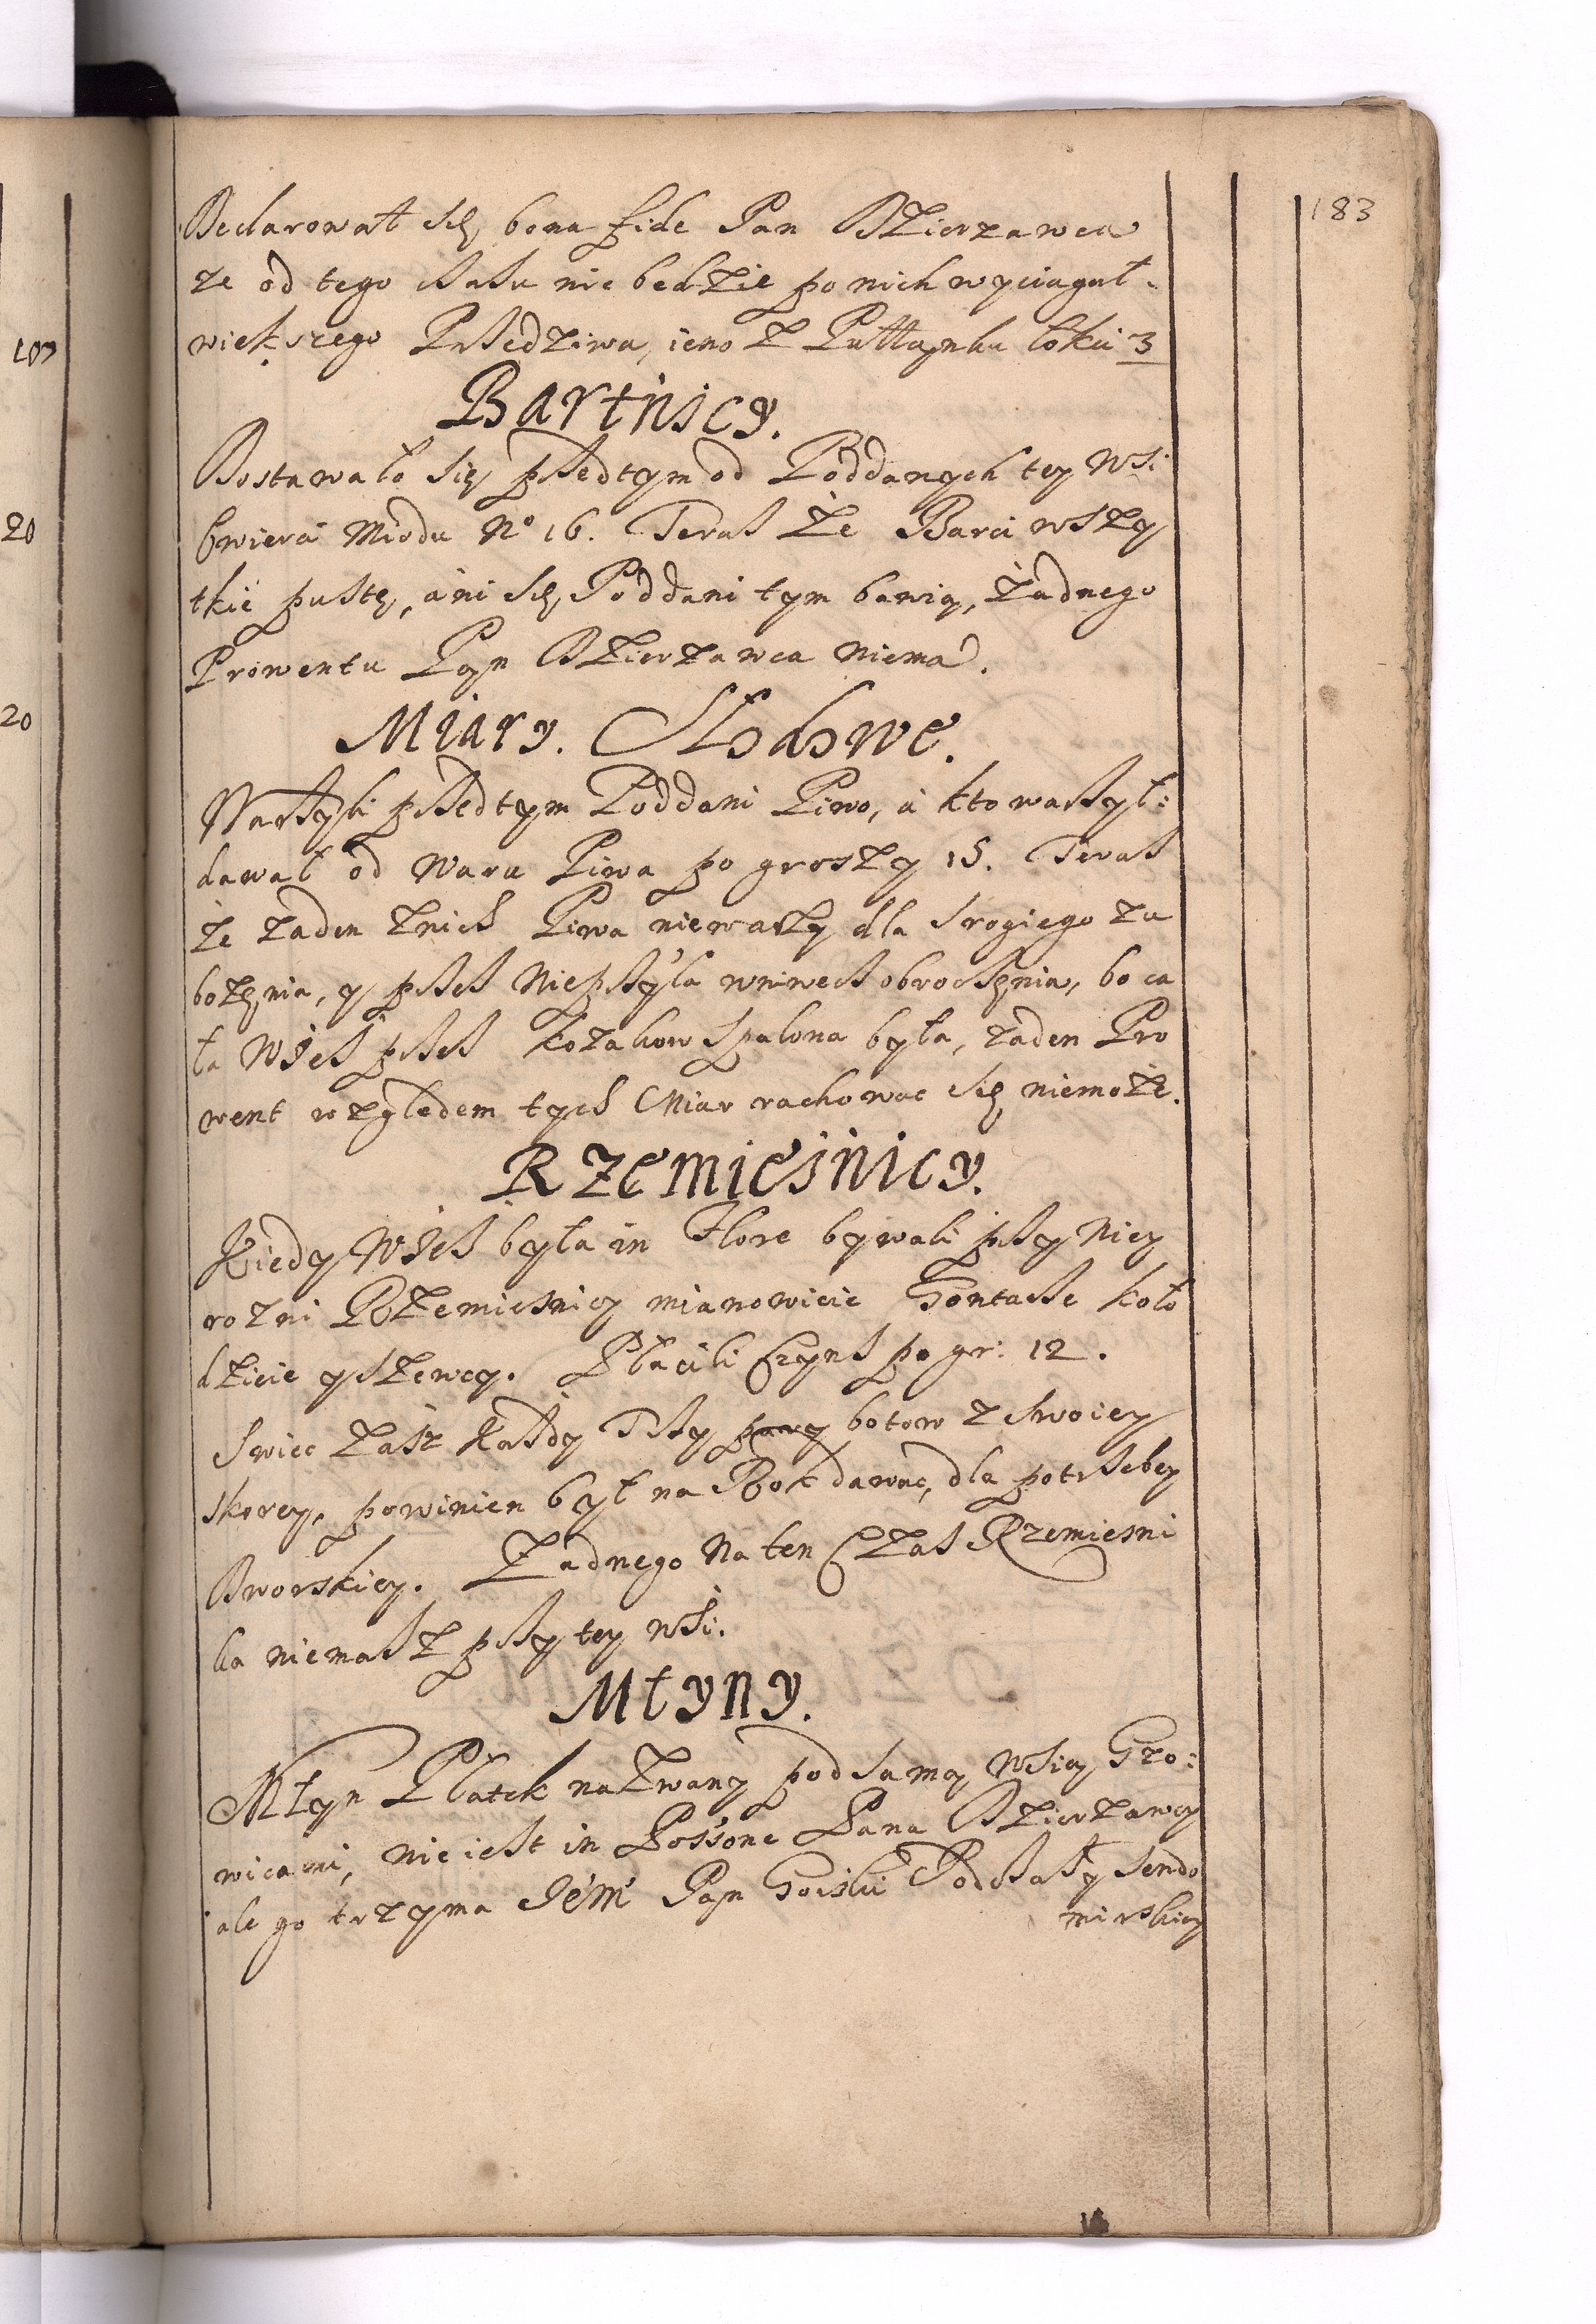 183
Declarował się bona fide Pan Dzierzawca
ze od tego czasu nie bedzie po nich wyciagał
wiekszego Przedziwa, ieno z Pułłanku łokci 3
Bartnicy.
Dostawało się przedtym od Poddanych tey Wsi
Cwierci Miodu No 16. Teraz że Barci wszy
tkie puste, ani się Poddani tym bawią, żadnego
Prowentu Pan Dzierzawca niema.
Miary Słodowe.
Warzyli przedtym Poddani Piwo, á kto warzył
dawał od Waru Piwa po groszy 15. Teraz
że zaden znich Piwa niewarzy dla srogiego zu
bożenia, y przez Nieprzyiaciela wniwecz obrocenia, bo ca
ła Wieś przez Kozakow spalona była, zaden Pro
went względem tych Miar rachowac się niemoże.
Rzemieśnicy.
Kiedy Wieś była in Flore bywali przy Niey
rozni Rzemiesnicy mianowicie Gontarze Koło
dzieie y Szewcy. Płacili Czynsz po gr: 12.
Swiec zasz każdy Trzy pary botow z swoiey
skorey, powinien był na Rok dawac, dla potrzebey
Dworskiey. Żadnego Na ten Czas Rzemiesni
ka niemasz przy tey wsi.
Młyny.
Młyn Płatek nazwany pod samą Wsią Gro:
wicami, nie iest in Possone Pana Dzierzawcy
ale go trzyma Jem Pan Goiski Podczaszy Sendo
mirskiey
107
20
20